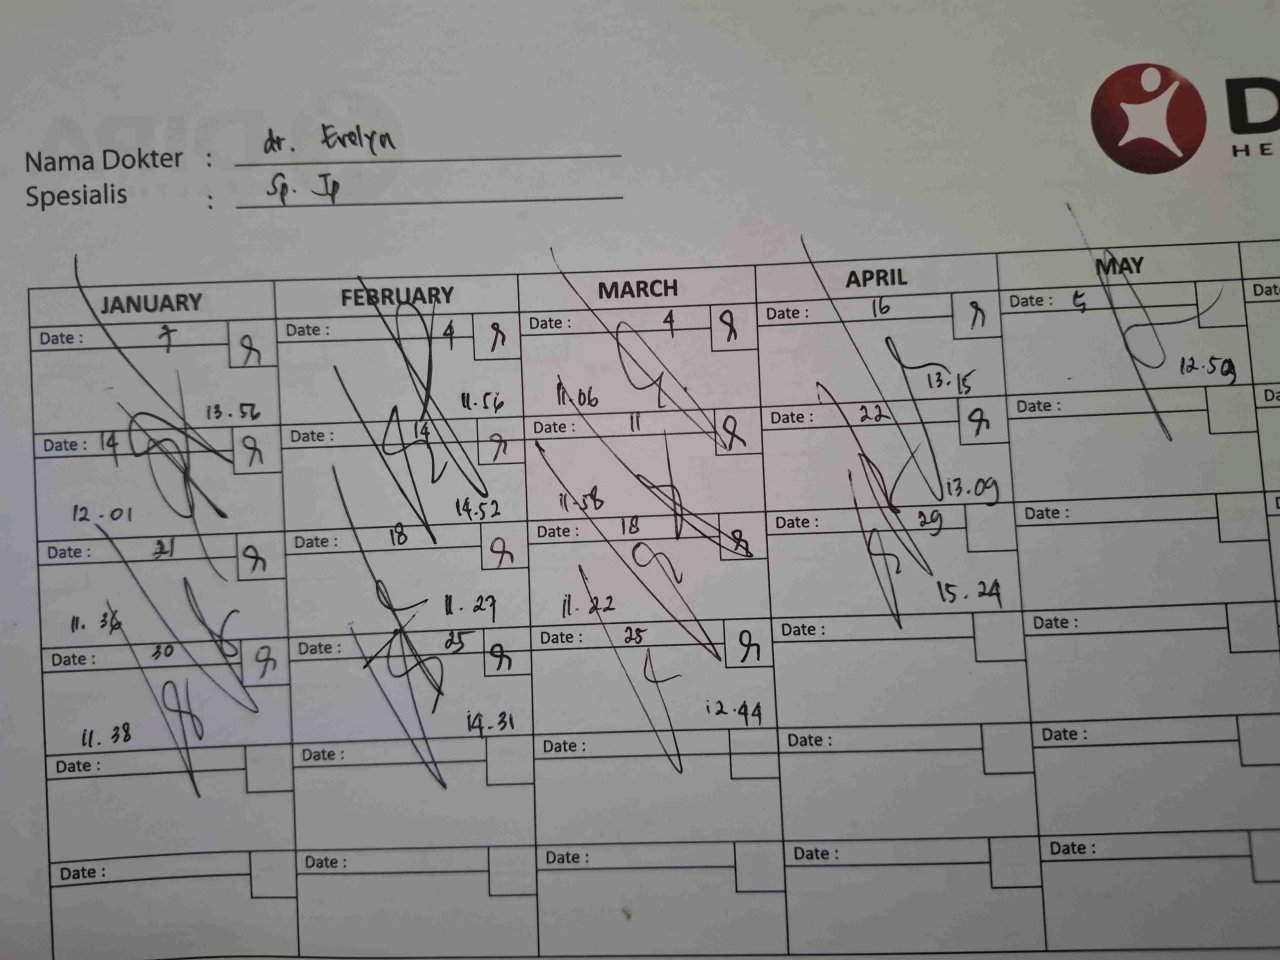 D
HE
Nama Dokter : dr. Evelyn
Spesialis : Sp. Jp
JANUARY FEBRUARY MARCH APRIL MAY
Date : 7 Date : 4 Date : 4 Date : 16 Date : 5 Date
13.56 11.56 11.06 13.15 12.50
Date : 14 Date : 14 Date : 11 Date : 22 Date : Da
12.01 14.52 11.58 13.09
Date : 21 Date : 18 Date : 18 Date : 29 Date :
11.36 11.27 11.22 15.24
Date : 30 Date : 25 Date : 25 Date : Date :
11.38 14.31 12.44
Date : Date : Date : Date : Date :
Date : Date : Date : Date : Date :